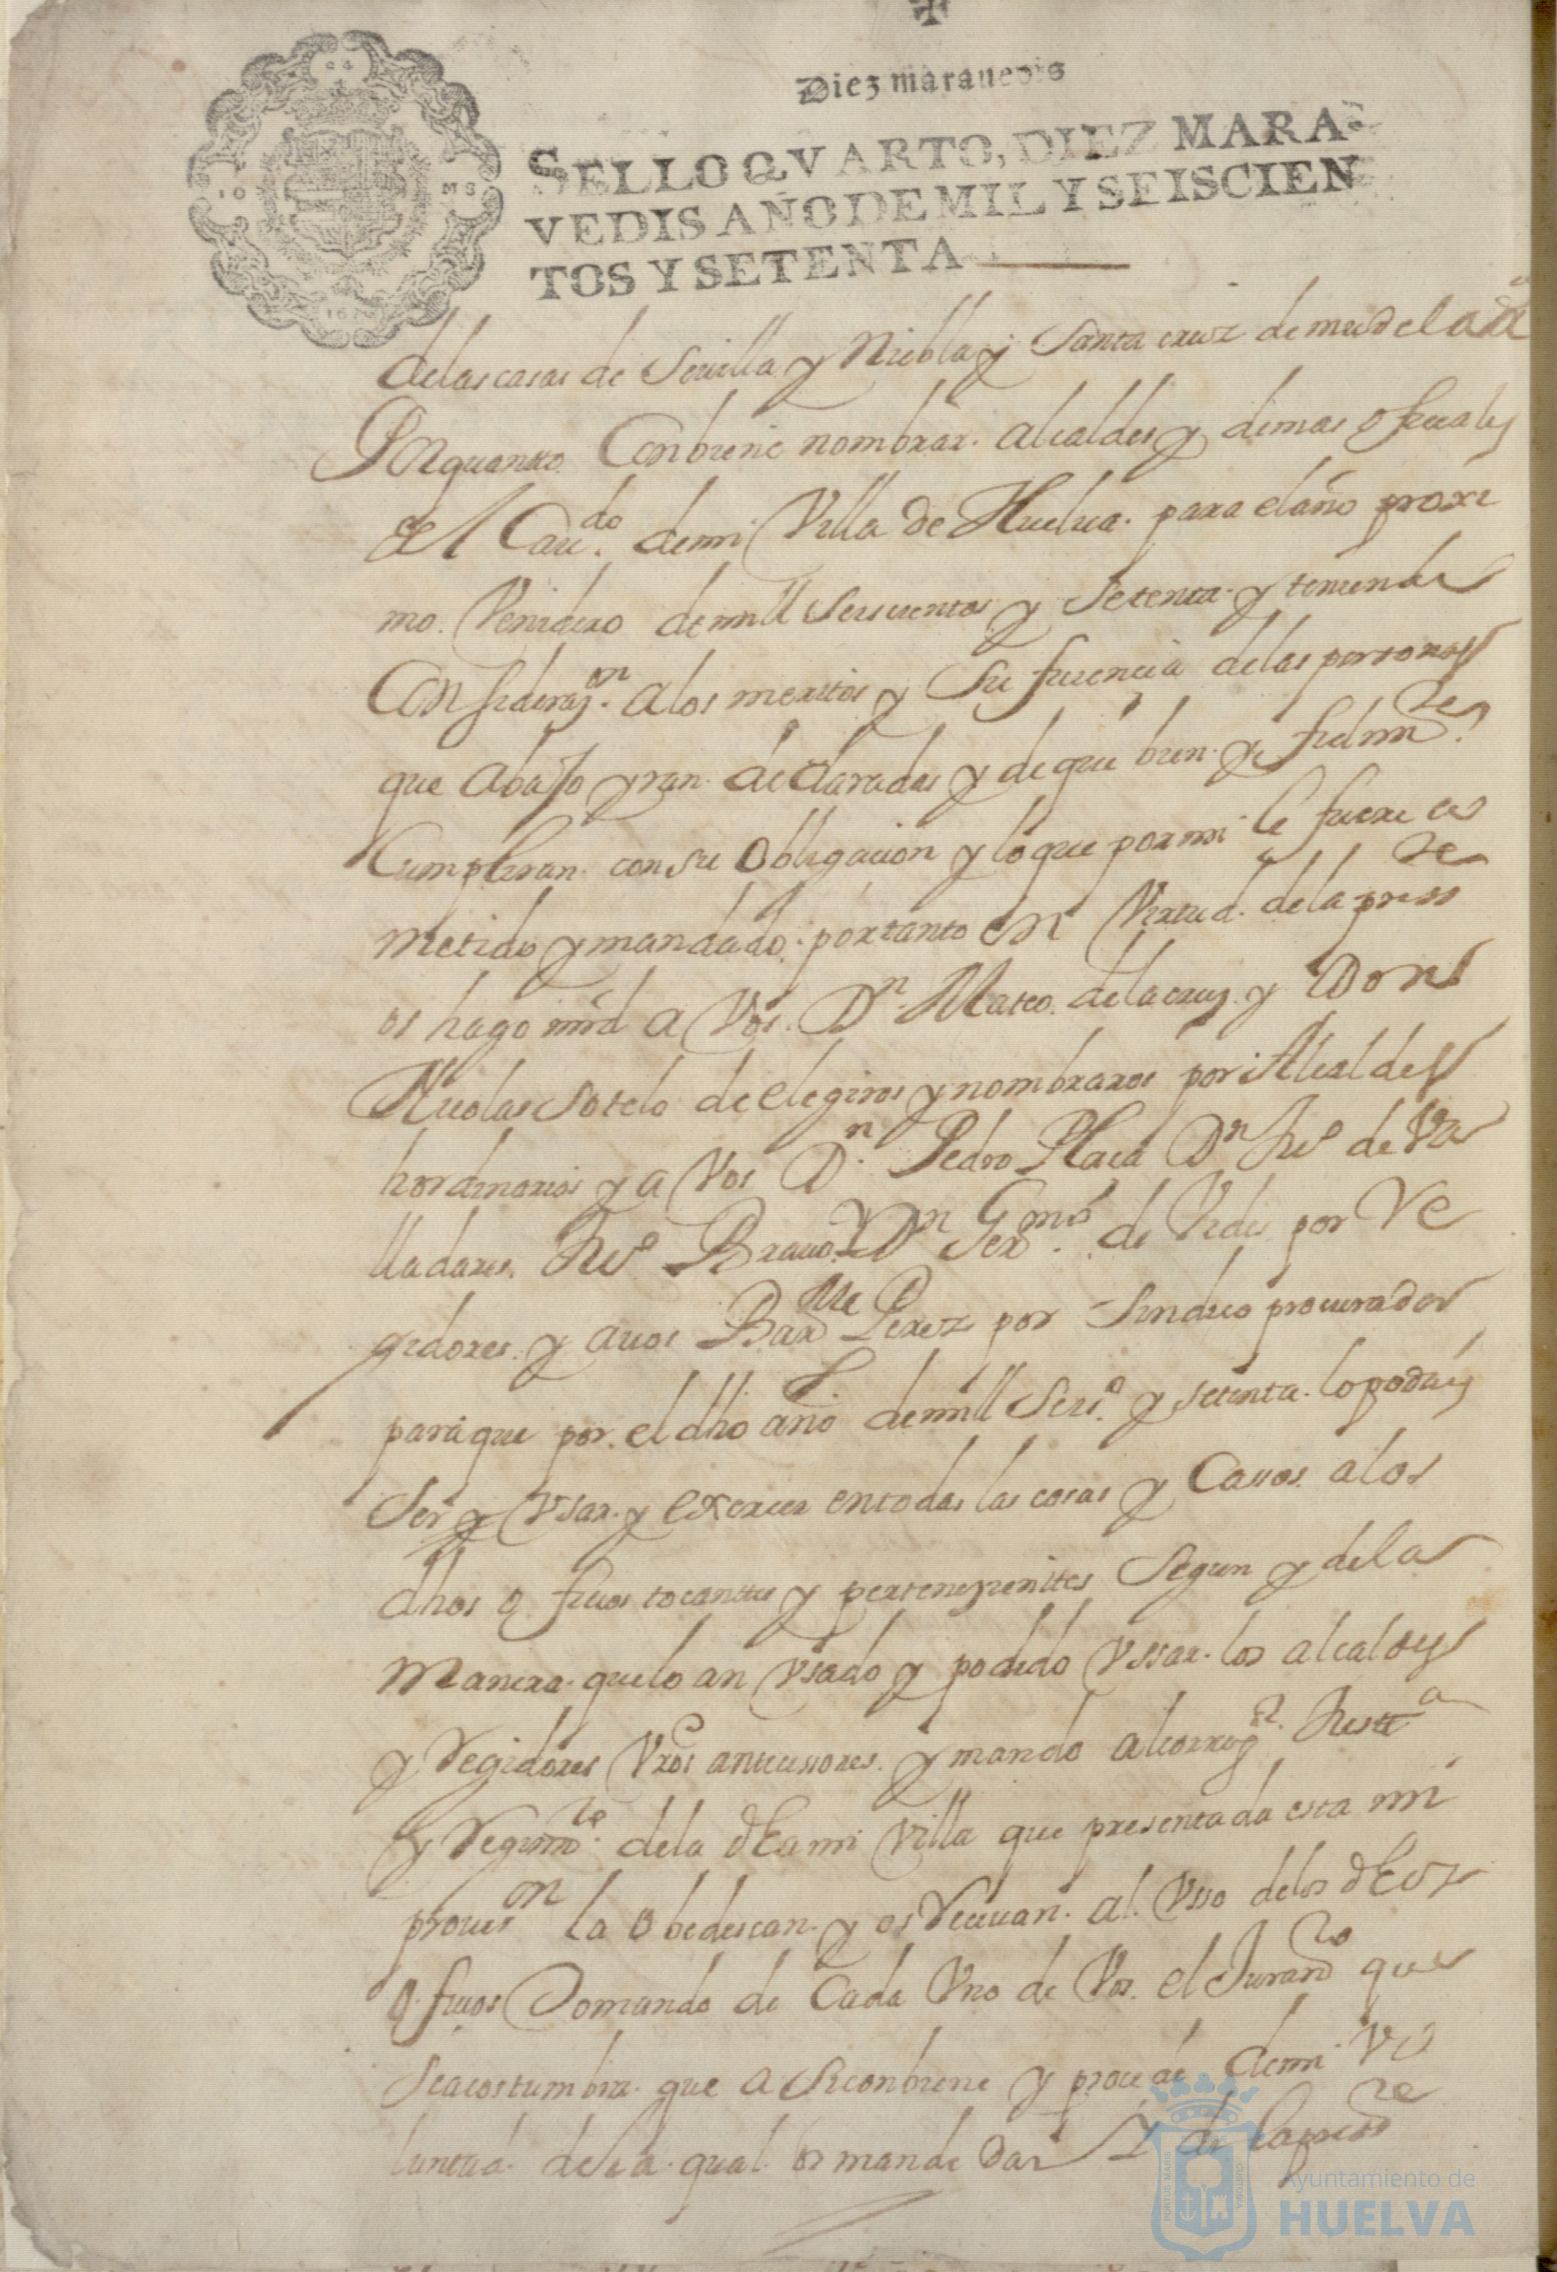 Diez marauedis
SELLO QVARTO, DIEZ MARA-
VEDIS AÑO DE MIL Y SEISCIEN
TOS Y SETENTA
1670
de las casas de Seuilla y Niebla y Santa cruz de mudela
Por quanto Conbiene nombrar alcaldes y demas ofiçiales
del Cau.do de mi Villa de Huelua para el año proxi
mo Venidero de mill Seiscientos y Setenta y teniendo
Consideraz.on a los meritos y Sufiçiencia de las personas
que abajo yran declaradas y de que bien y fielm.te
Cumpliran con su Obligaçion y lo que por mi le fuere co
metido y mandado por tanto en Virtud de la press.te
os hago mrd a Vos D.n Mateo de la cruz y Don
Nicolas Sotelo de elegiros y nombraros por Alcaldes
hordinarios y a Vos D.n Pedro Plaça D.n de Va
lladares Brauo y D.n Ger.mo de Vides por Re
gidores y a uos Bar.me Perez por Sindico procurador
para que por el dho año de mill Seis.o y setenta lo podais
Ser y Vsar y exercer en todas las cosas y Cassos a los
dhos ofiçios tocanttes y perteneçientes Segun y de la
Manera que lo an Vsado y podido Vssar los alcaldes
y Regidores Vros antecessores y mando al correg.r Justt.a
y Regim.to de la dha mi Villa que presentada esta mi
prouis.on la Obedescan y os Reciuan al Vsso de los dhos
ofiçios Tomando de Cada Vno de Vos el Juram.to que
se acostumbra que a Si conbiene y procede de mi Vo
luntad de la qual os mande dar Y di la press.te
PORTUS MARIS CUSTODIA
Ayuntamiento de
HUELVA